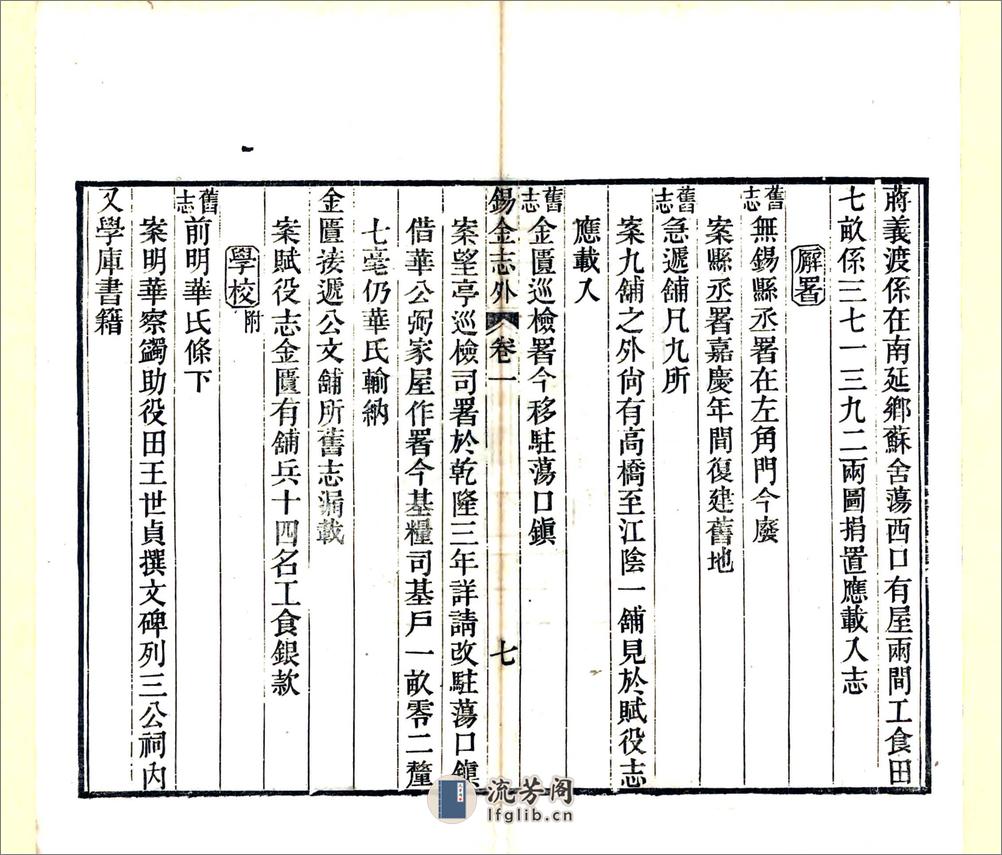 蔣義渡係在南延鄉蘇舍蕩西口有屋兩間工食田
七畝係三七一三九二兩圖捐置應載入志
廨署
舊志無錫縣丞署在左角門今廢
案縣丞署嘉慶年間復建舊地
舊志急遞舖凡九所
案九舖之外尙有高橋至江陰一舖見於賦役志
應載入
舊志金匱巡檢署今移駐蕩口鎭
錫金志外 卷一 七
案望亭巡檢司署於乾隆三年詳請改駐蕩口鎭
借華公弼家屋作署今基糧司基戶一畝零二釐
七毫仍華氏輸納
金匱接遞公文舖所舊志漏載
案賦役志金匱有舖兵十四名工食銀款
學校附
舊志前明華氏條下
案明華察蠲助役田王世貞撰文碑列三公祠內
又學庫書籍
流芳阁
lfglib.cn